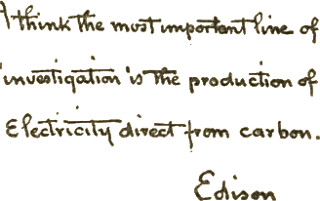 I think the most important line of
investigation is the production of
Electricity direct from carbon.
Edison